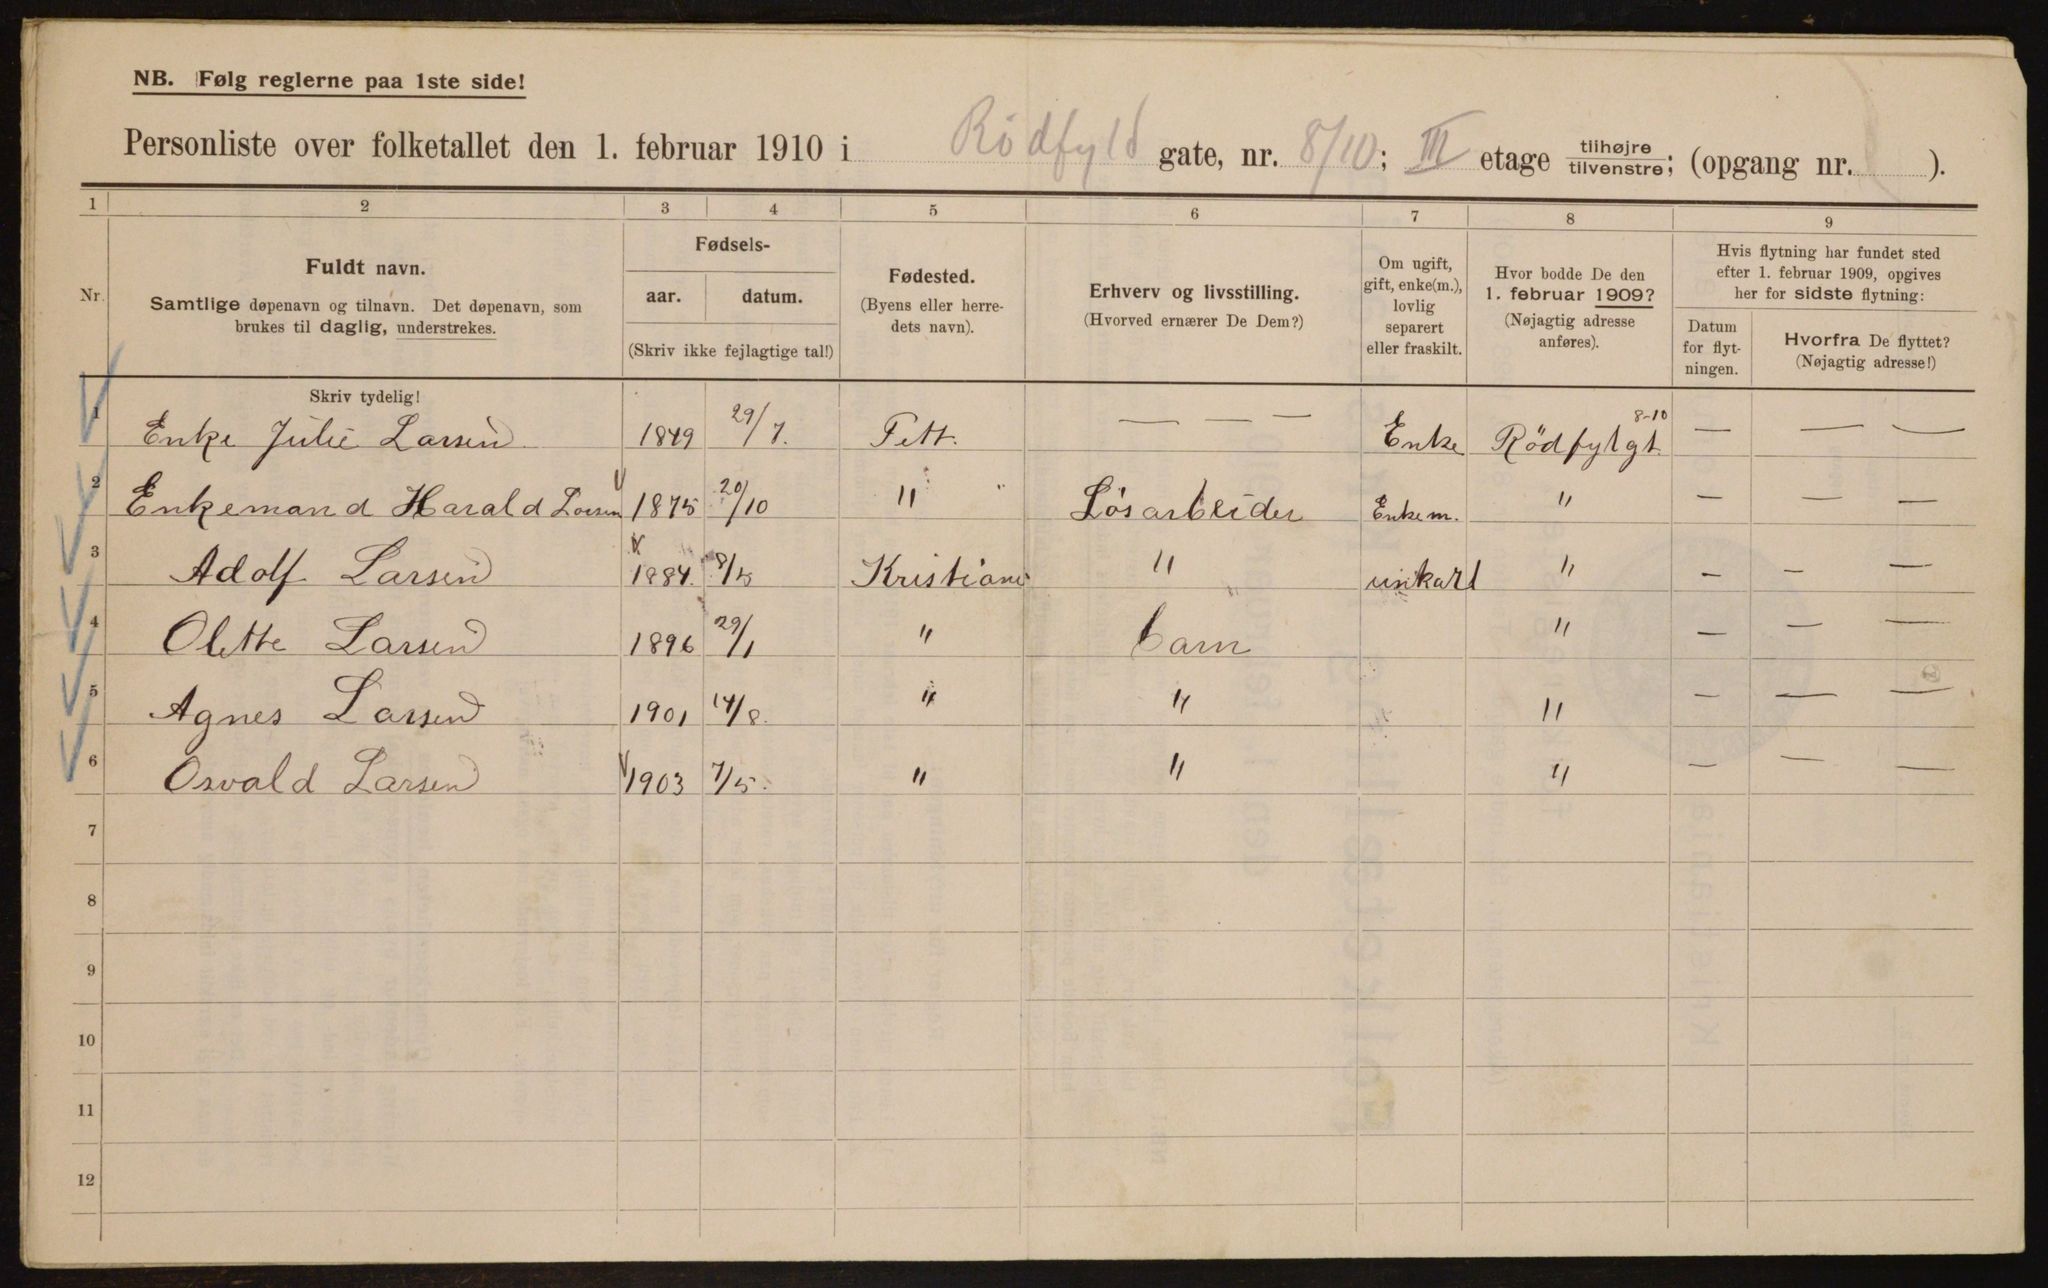 NB. Følg reglerne paa 1ste side!
Personliste over folketallet den 1. februar 1910 i Rödfyld gate, nr. 8/10; III etage tilhøjre/tilvenstre; (opgang nr. ).
1 2 3 4 5 6 7 8 9
Nr.
Fuldt navn.
Samtlige døpenavn og tilnavn. Det døpenavn, som
brukes til daglig, understrekes.
Fødsels-
aar. datum.
(Skriv ikke fejlagtige tal!)
Fødested.
(Byens eller herre-
dets navn).
Erhverv og livsstilling.
(Hvorved ernærer De Dem?)
Om ugift,
gift, enke(m.),
lovlig
separert
eller fraskilt.
Hvor bodde De den
1. februar 1909?
(Nøjagtig adresse
anføres).
Hvis flytning har fundet sted
efter 1. februar 1909, opgives
her for sidste flytning:
Datum
for flyt-
ningen.
Hvorfra De flyttet?
(Nøjagtig adresse!)
Skriv tydelig!
1 Enke Julie Larsen 1849 29/7. Fett. — — — Enke Rödfylgt. 8-10 — — —
2 Enkemand Harald Larsen 1875 20/10 " " Lösarbeider Enkem. " — — —
3 Adolf Larsen 1884. 8/5 Kristiania " unkarl " — — —
4 Olette Larsen 1896 29/1 " barn " — — —
5 Agnes Larsen 1901 14/8. " " " — — —
6 Osvald Larsen 1903 7/5. " " " — — —
7
8
9
10
11
12